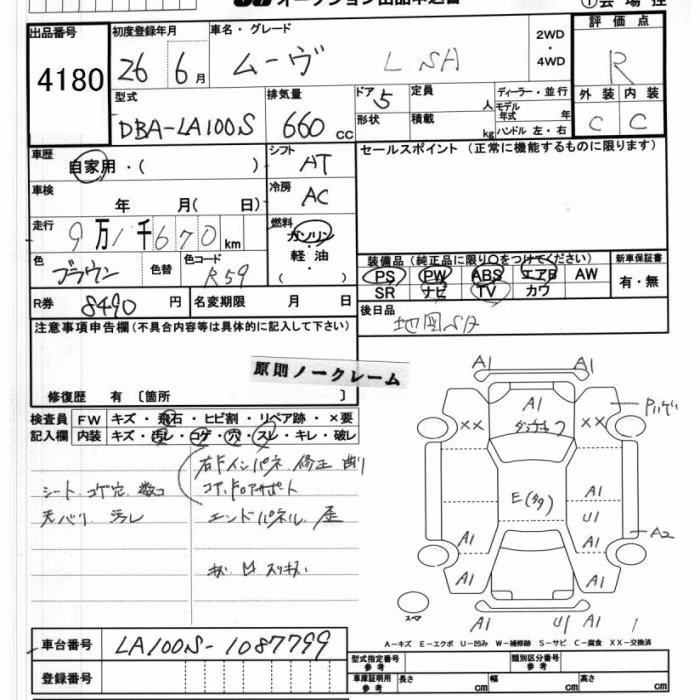 オークション出品申込書
出品番号 初度登録年月 車名・グレード 2WD ・ 4WD 評価点
4180 26年 6月 ムーヴ L SA R
型式 排気量 ドア 定員 人 ディーラー・並行 外装 内装
DBA-LA100S 660cc 5 モデル年式 年 C C
形状 積載 kg ハンドル 左・右
車歴 自家用・( ) シフト AT セールスポイント (正常に機能するものに限ります)
車検 年 月( 日) 冷房 AC
走行 9万1千670km 燃料 ガソリン・軽油・( )
色 ブラウン 色替 色コード R59
装備品 (純正品に限り○をつけてください) 新車保証書
PS PW ABS エアB AW 有・無
SR ナビ TV カワ
R券 8490円 名変期限 月 日
後日品 地図SD
注意事項申告欄 (不具合内容等は具体的に記入して下さい)
原則ノークレーム
修復歴 有 〔箇所 〕
検査員記入欄 FW キズ・飛石・ヒビ割・リペア跡・×要
内装 キズ・汚レ・コゲ・穴・スレ・キレ・破レ
シート コゲ穴 数コ
天バリ 汚レ
エンドパネル 歪
A1 A1
A1
XX XX
E(多)
A1
U1
A1 A1 A2
A1 A1
スペア
A1 U1
A-キズ E-エクボ U-凹み W-補修跡 S-サビ C-腐食 XX-交換済
車台番号 LA100S-1087799
型式指定番号 参考 類別区分番号 参考
登録番号
車庫証明用 参考 長さ cm 幅 cm 高さ cm